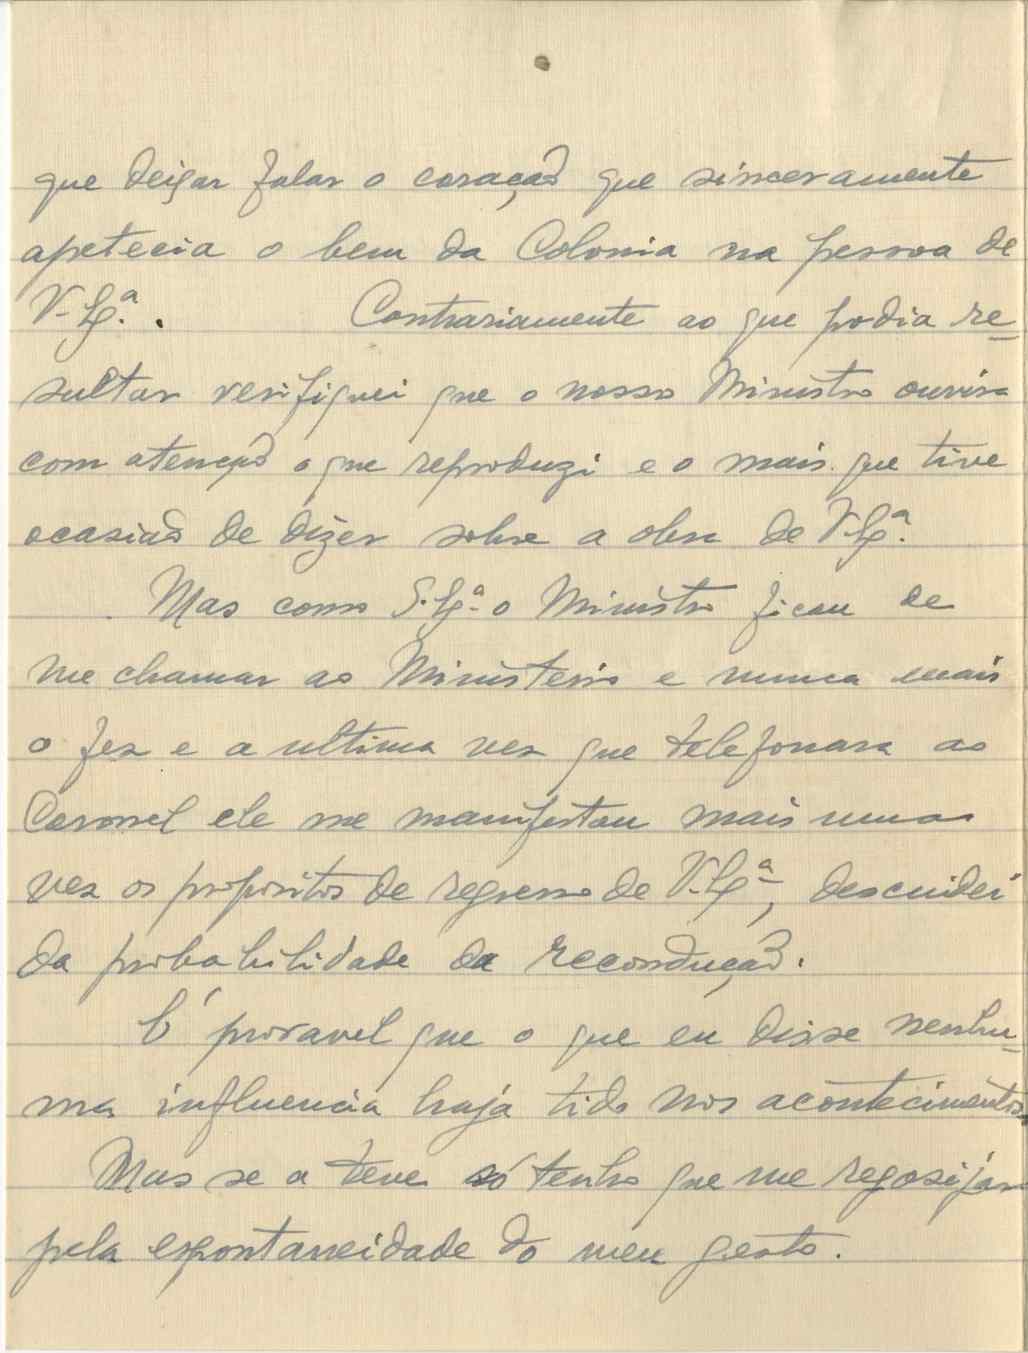 que deixar falar o coração que sinceramente
apetecia o bem da Colonia na pessoa de
V. Exª. . Contrariamente ao que podia re-
sultar verifiquei que o nosso Ministro ouvira
com atenção o que reproduzi e o mais que tive
ocasião de dizer sobre a obra de V. Exª.
Mas como S. Exª. o Ministro ficou de
me chamar ao Ministerio e nunca mais
o fez e a ultima vez que telefonara ao
Coronel ele me manifestou mais uma
vez os propositos de regresso de V. Exª, descuidei
da probabilidade da recondução.
É provavel que o que eu disse nenhu-
ma influencia haja tido nos acontecimentos.
Mas se a teve só tenho que me regosijar
pela espontaneidade do meu gesto.